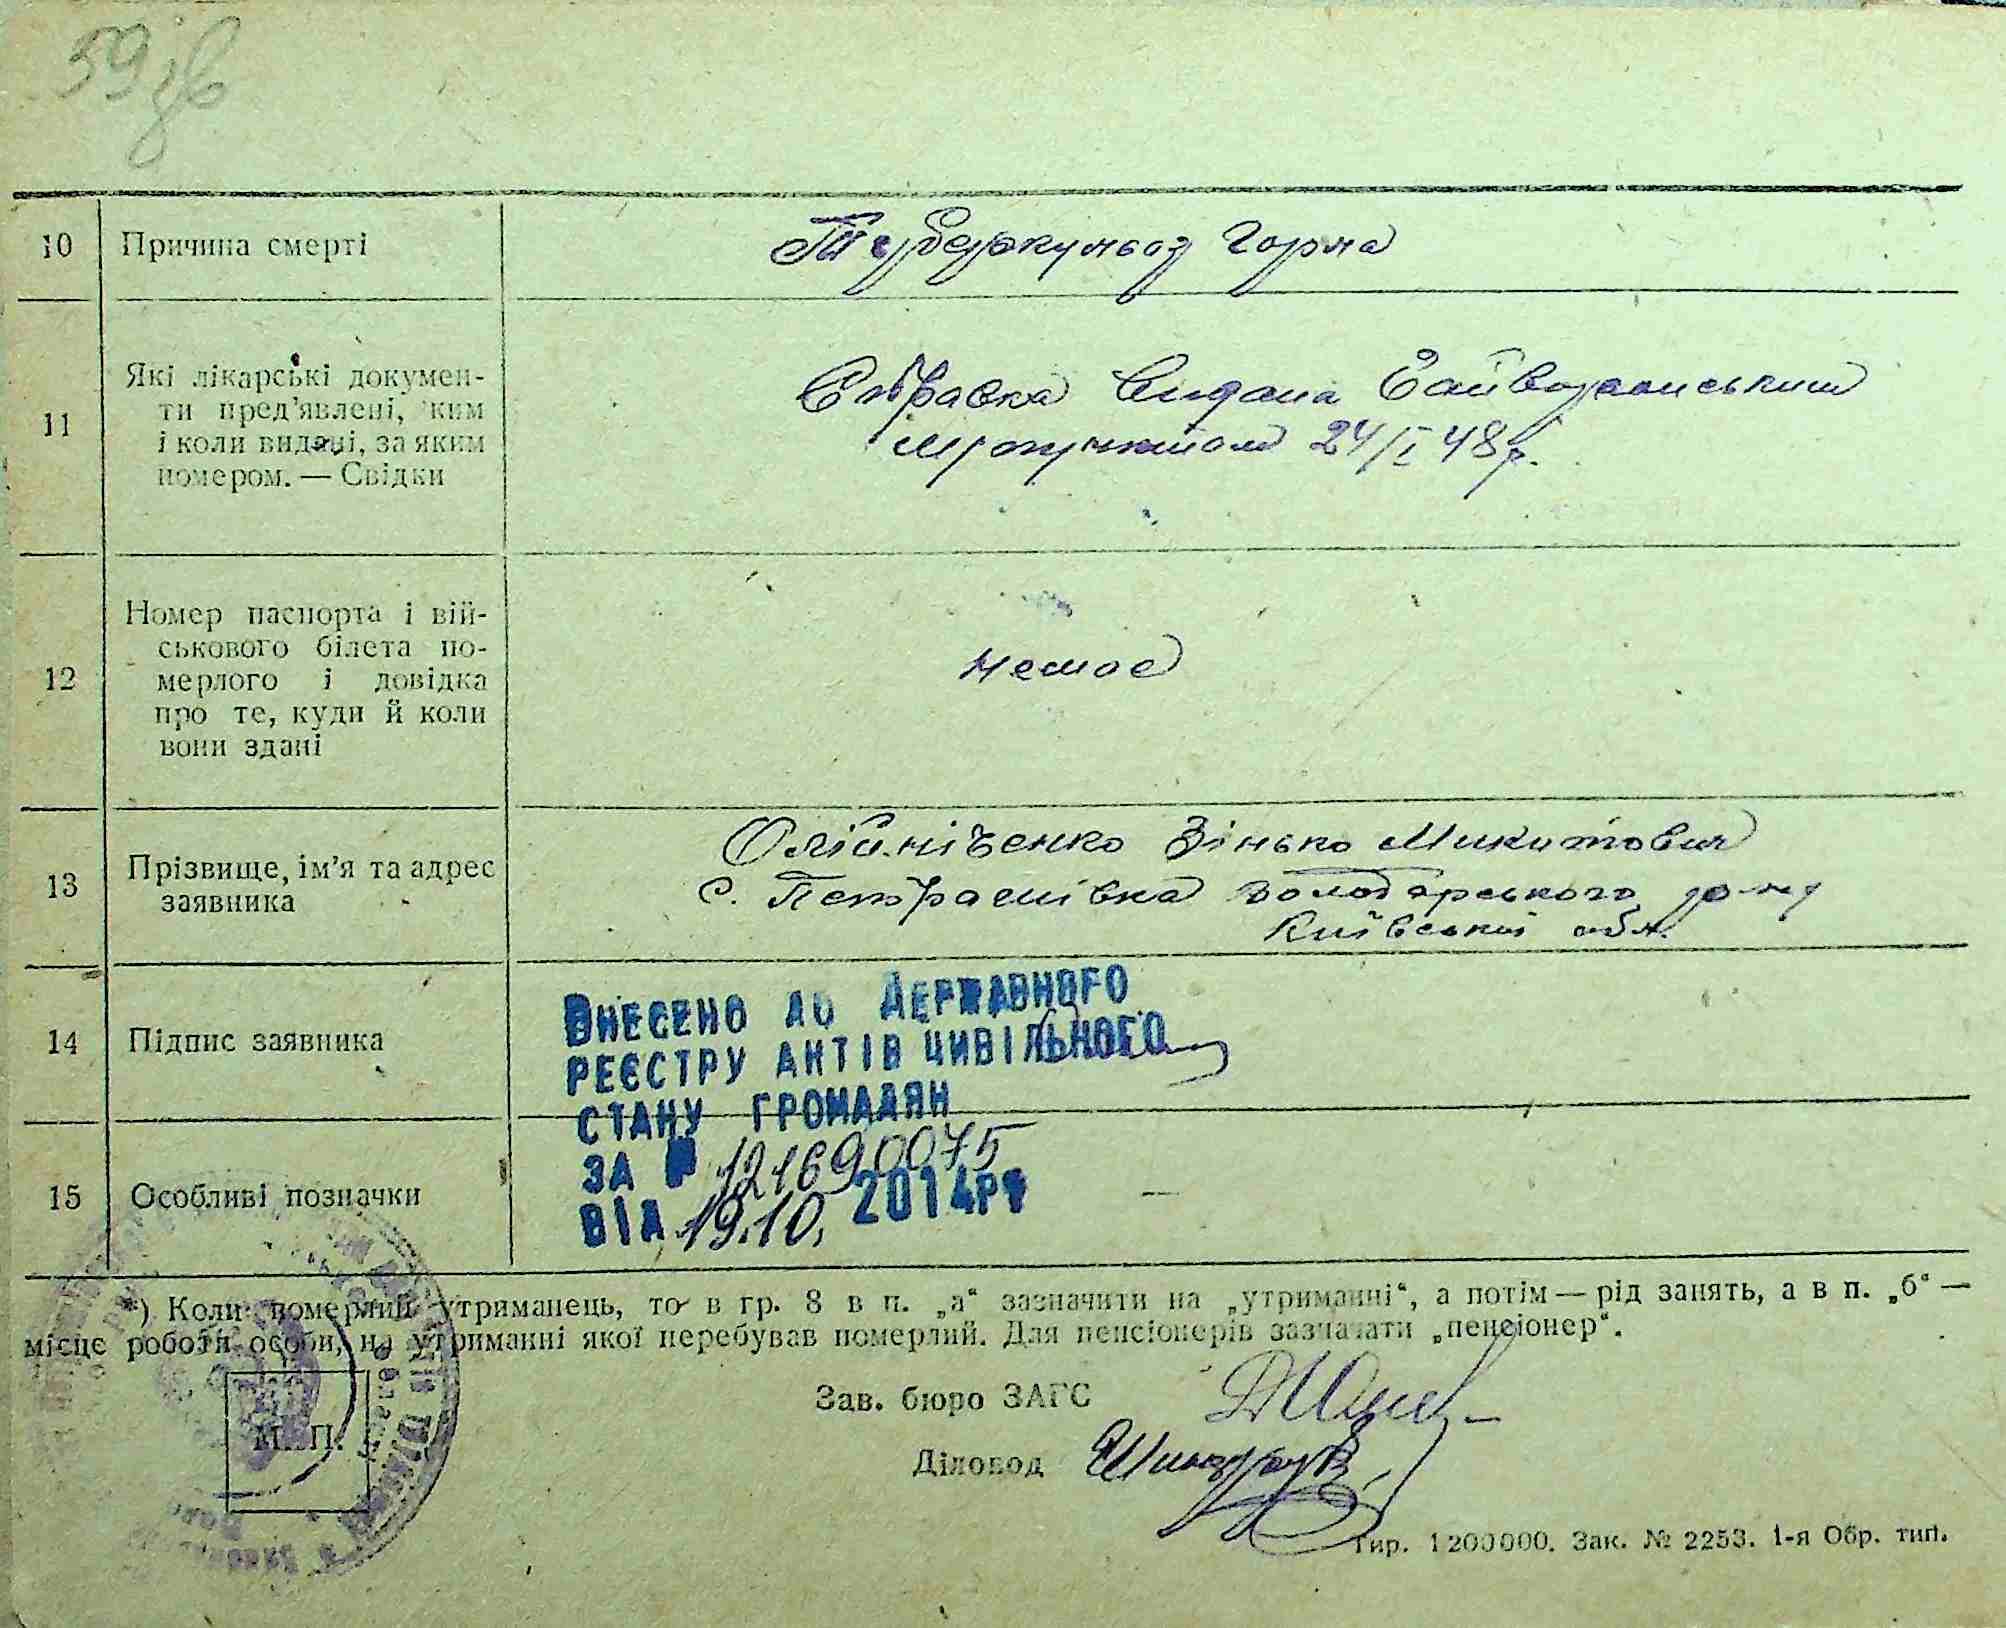 59 зв
10 Причина смерті Туберкульоз горла
11 Які лікарські докумен-
ти пред'явлені, ким
і коли видані, за яким
номером. — Свідки
Справка видана Гайворонським
медпунктом 24/I 48 р.
12 Номер паспорта і вій-
ськового білета по-
мерлого і довідка
про те, куди й коли
вони здані
немає
13 Прізвище, ім'я та адрес
заявника
Олійніченко Зінько Микитович
с. Петрашівка Володарського р-ну
Київській обл.
14 Підпис заявника
ВНЕСЕНО ДО ДЕРЖАВНОГО
РЕЄСТРУ АКТІВ ЦИВІЛЬНОГО
СТАНУ ГРОМАДЯН
ЗА № 121690075
ВІД 19.10. 2014 р
15 Особливі позначки —
*) Коли померлий утриманець, то в гр. 8 в п. „а“ зазначити на „утриманні“, а потім — рід занять, а в п. „б“ —
місце роботи особи, на утриманні якої перебував померлий. Для пенсіонерів зазначати „пенсіонер“.
Зав. бюро ЗАГС
Діловод
М. П.
Тир. 1200000. Зак. № 2253. 1-я Обр. тип.